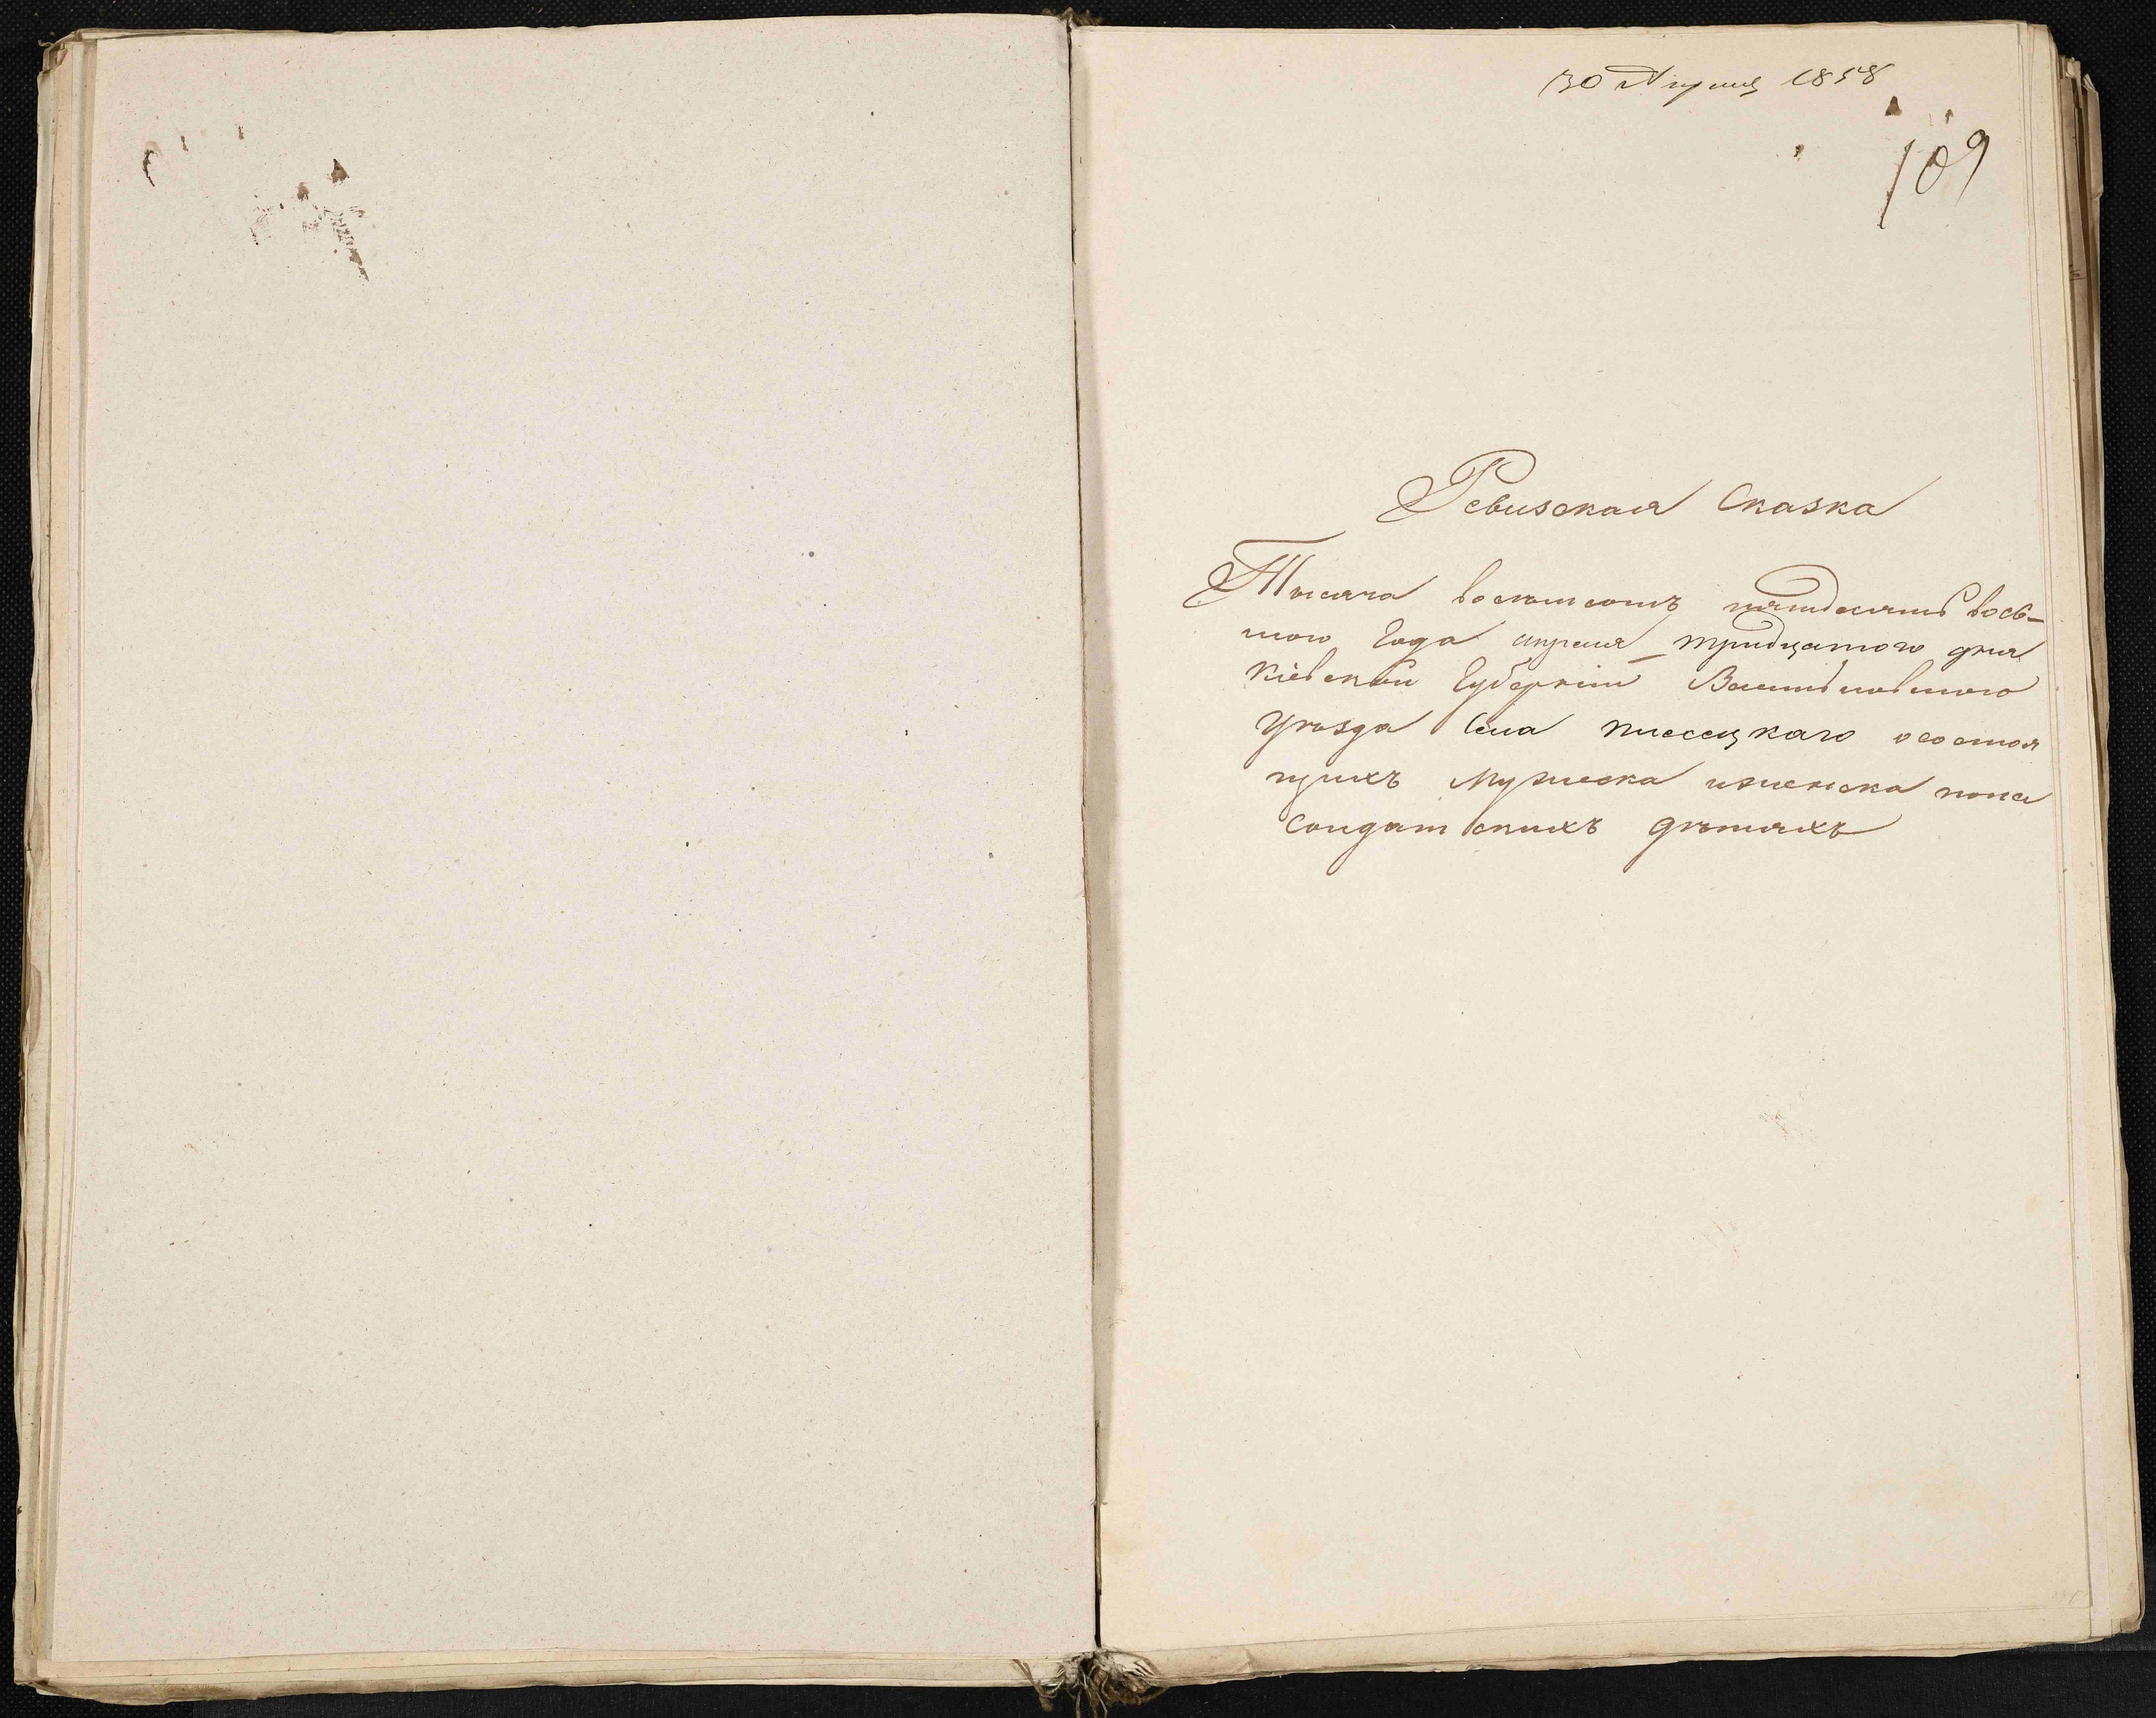 30 Апреля 1858
109
Ревизская Сказка
Тысяча восемьсотъ пятьдесятъ вось-
мого Года апреля тридцатого дня
Кіевской Губерніи Васильковского
Уѣзда Села Пиесецкаго осостоя
щихъ Мужеска иженска пола
Солдатскихъ дѣтяхъ